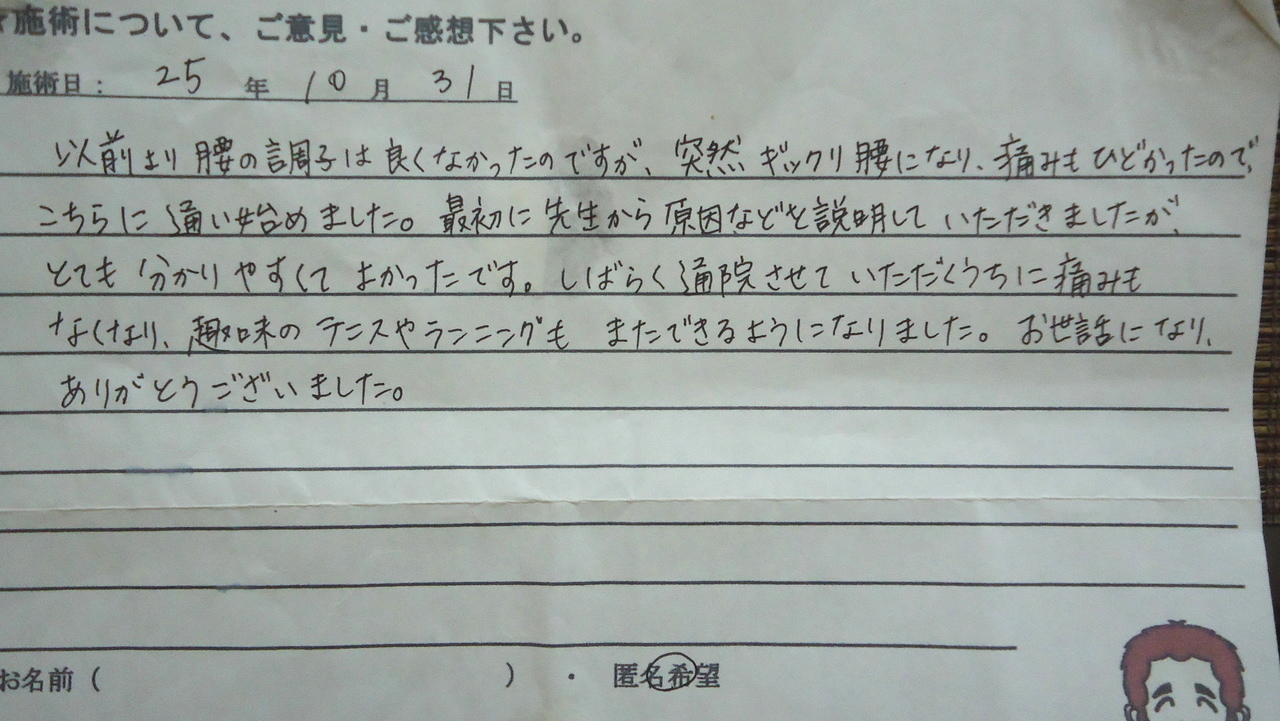 施術について、ご意見・ご感想下さい。
施術日： 25 年 10 月 31 日
以前より腰の調子は良くなかったのですが、突然ギックリ腰になり、痛みもひどかったので、
こちらに通い始めました。最初に先生から原因などを説明していただきましたが、
とても分かりやすくてよかったです。しばらく通院させていただくうちに痛みも
なくなり、趣味のテニスやランニングもまたできるようになりました。お世話になり、
ありがとうございました。
お名前（　　　）・匿名希望